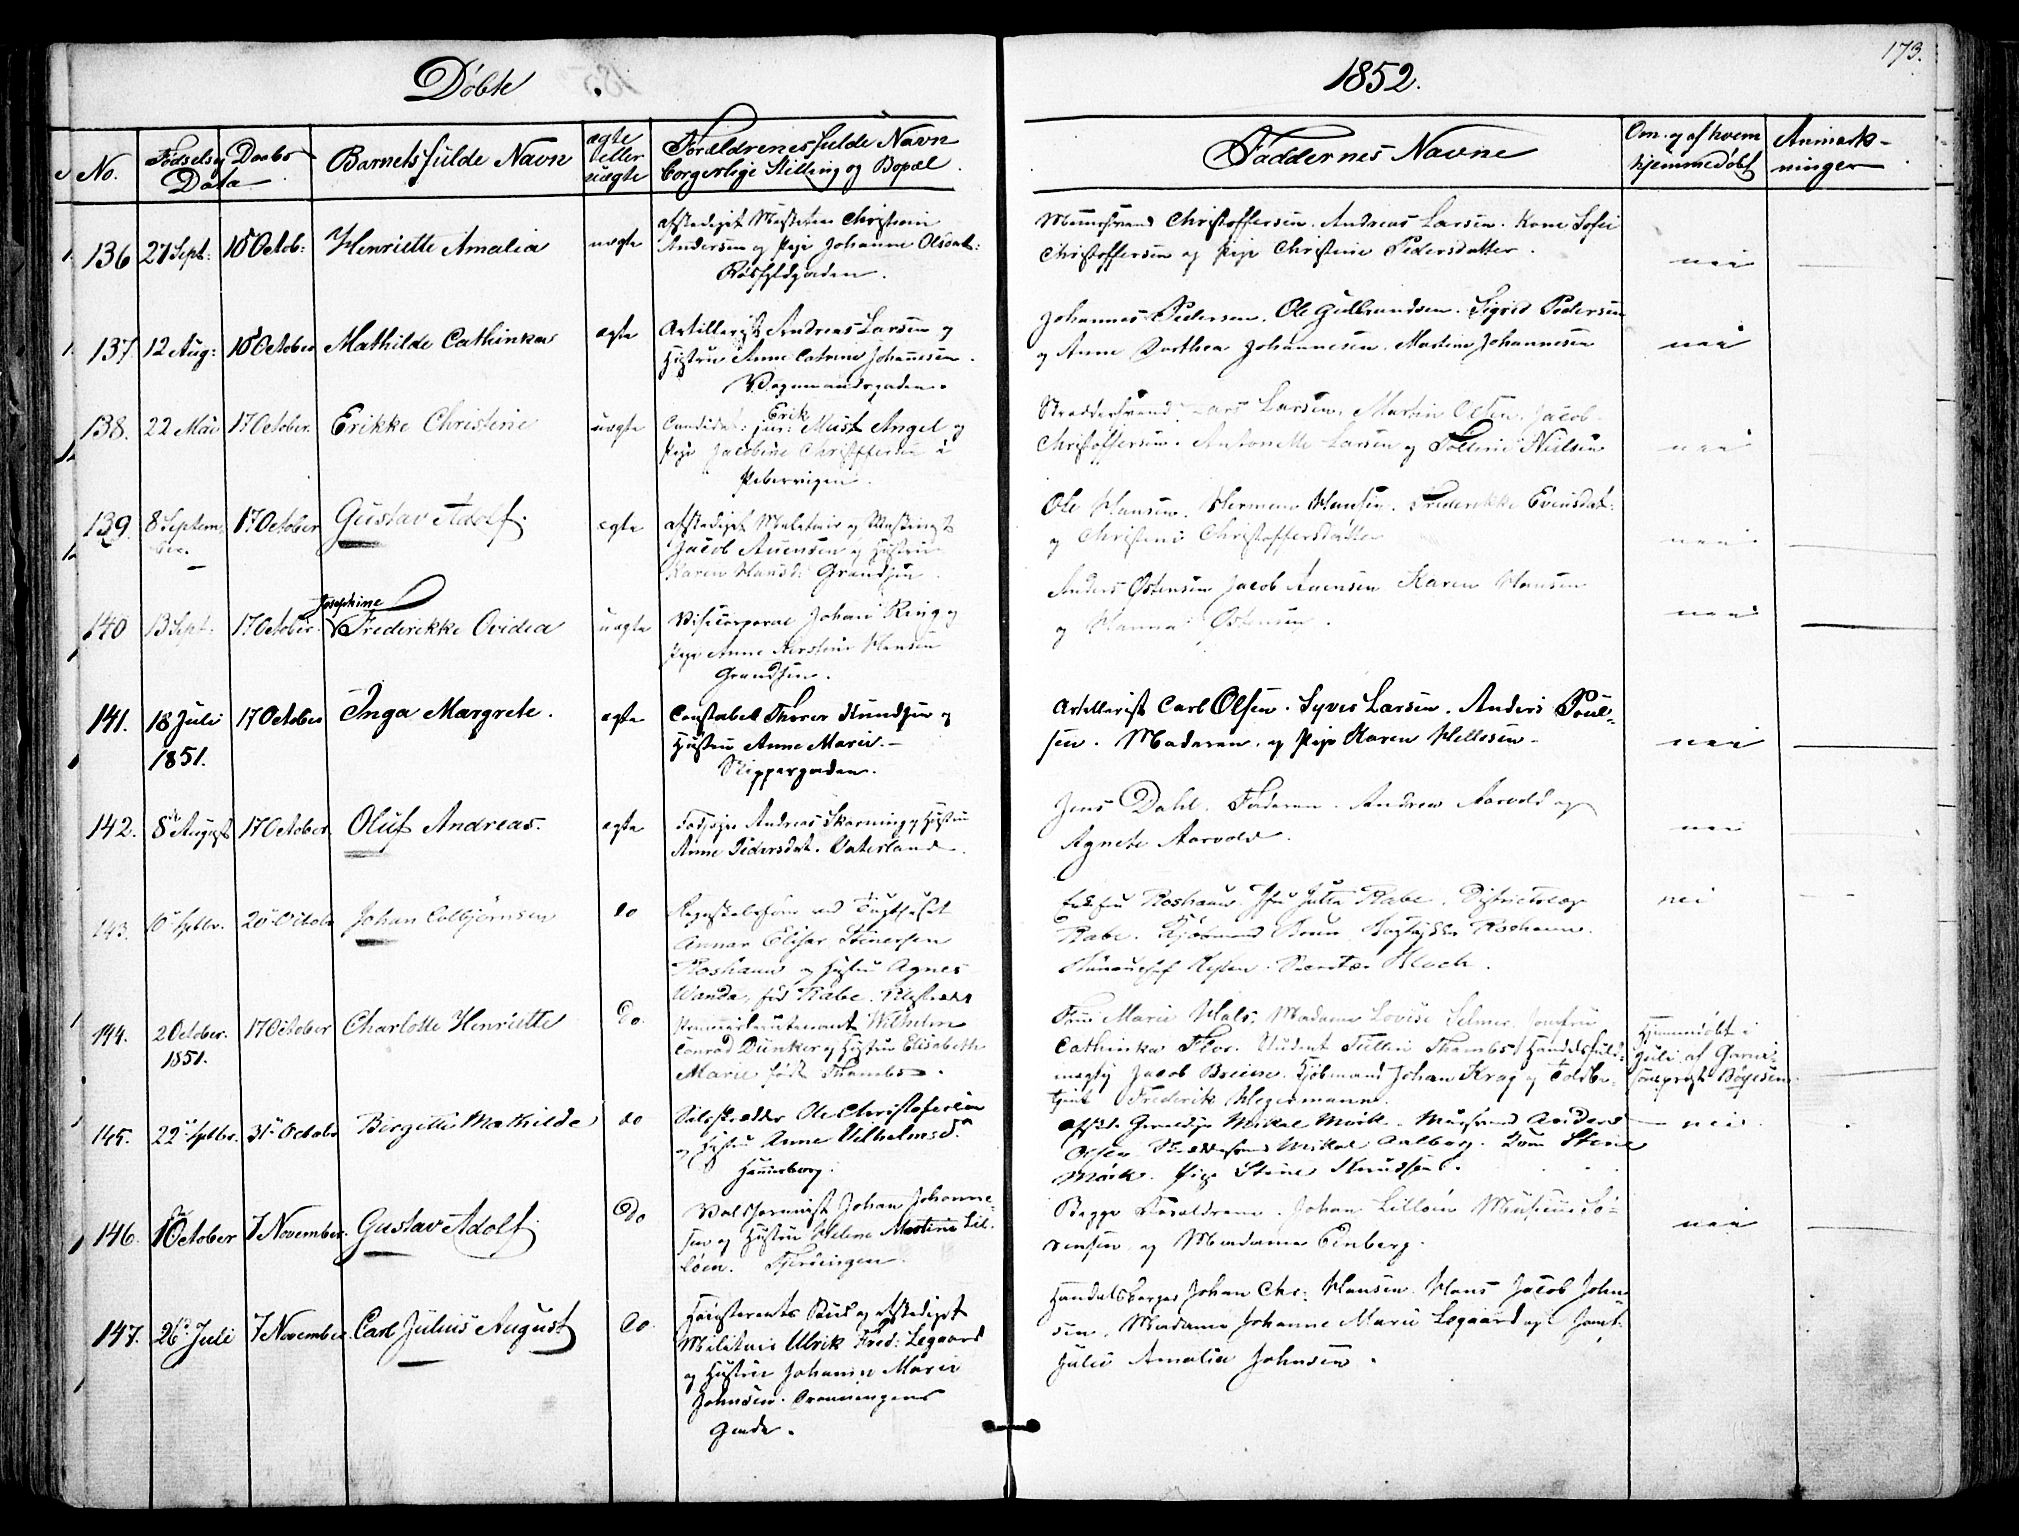 Døbte
1852.
173.
No.
Fødsels og Daabs
Data
Barnets fulde Navn
ægte
eller
uægte
Forældrenes fulde Navn
borgerlige Stilling og Bopæl
Faddernes Navne
Om og af hvem
hjemmedøbt
Anmærk-
ninger
136 27 Sept: 10 Octob: Henriette Amalia uægte
afskediget Musketeer Christian
Andersen og Pige Johanne Olsdat:
Munsvend Christoffersen. Andreas Larsen. Kone Sofie
Christoffersen og Pige Christine Pedersdatter.
nei
137 12 Aug: 10 October Mathilde Cathinka ægte
Artillerist Andreas Larsen og
Hustru Anne Catrine Johannesen.
Vognmandsgaden.
Johannes Pedersen. Ole Gulbrandsen. Sigrid Pedersen
og Anne Dorthea Johannesen. Martin Johannesen
nei
138. 22 Mai 17 October. Erikke Christine uægte
Candidat: jur: Erik Must Angel og
Pige Jacobine Christoffersen i
Pebervigen.
Skræddersvend Lars Larsen. Martin Olsen. Jacob
Christoffersen. Antonette Larsen og Nielsen
nei
139. 8 Septem- 17 October Gustav Adolf. ægte
ber.
afskediget Militair og
Jacob Auensen og Hustru
Karen Hansd: Grændsen.
Ole Hansen. Herman Hansen. Frederikke Evensdat:
og Christine Christoffersdatter
nei
140 13 Sept: 17 October. Josephine Frederikke Ovidia uægte
Vicecorporal Johan Ring og
Pige Anne Kerstine Hansen
Grændsen.
Anders Østensen Jacob Auensen Karen Hansen
og Hanna Østensen.
nei
141. 18 Juli 17 October Inga Margrete. ægte
1851.
Constabel Thorer Knudsen og
Hustru Anne Marie.
Skippergaden.
Artillerist Carl Olsen. Syver Larsen. Anders Poul-
sen. Moderen. og Pige Karen Hellesen
nei
142. 8 August 17 October. Oluf Andreas. ægte
Andreas Skorning og Hustru
Anne Pedersdat. Vaterland.
Jens Dahl. Faderen. Andrea Aarvold og
Agnete Aarvold.
nei
143. 10 Septbr. 20 Octobr Johan Colbjørnsen do
Regnskabsfører ved Tugthuset
Annar Elisar Steinersen
Roshauw og Hustru Agnes
Wanda, fød Rabe.
Roshauw Jutta Rabe. Districtslæge
Rabe. Kjøbmand Roshauw.
nei
144. 2 October. 17 October Charlotte Henriette do.
1851.
Premierlieutenant Wilhelm
Conrad Dunker og Hustru Elisabeth
Marie født Thambs.
Frue Marie Hals. Madame Lovise Selmer. Jomfru
Cathinka Floe. Student Tullin Thambs. Handelsfuld-
mægtig Jacob Breien. Kjøbmand Johan Krag og Toldbe-
tjent Frederik Hegermann.
Hjemmedøbt i
Juli af Garni-
sonsprest Bøyesen.
145. 22 Septbr. 31 Octobr Birgitte Mathilde do
Ole Christofersen
og Hustru Anne Vilhelmsd.
Hammersborg.
Mikal Mørk. Murswend Anders
Olsen Mikal Aalborg. Stine
Mørk. Pige Stine Knudsen.
nei
146. 1 October 7 November. Gustav Adolf. do
Johan Johanne-
sen og Hustru Helene Martine Lil-
loen. Fjerdingen.
Begge Forældrene. Johan Lilloen Sø-
rensen og Madame Einberg.
nei
147. 26 Juli 7 November. Carl Julius August do
og afskediget
Militair Ulrik Fred: Legaard
og Hustru Johanne Marie
Johnsen. Dronningens
Gade.
Handelsborger Johan Chr: Hansen. Hans Jacob John-
sen. Madame Johanne Marie Legaard og Jomf:
Julie Amalia Johnsen.